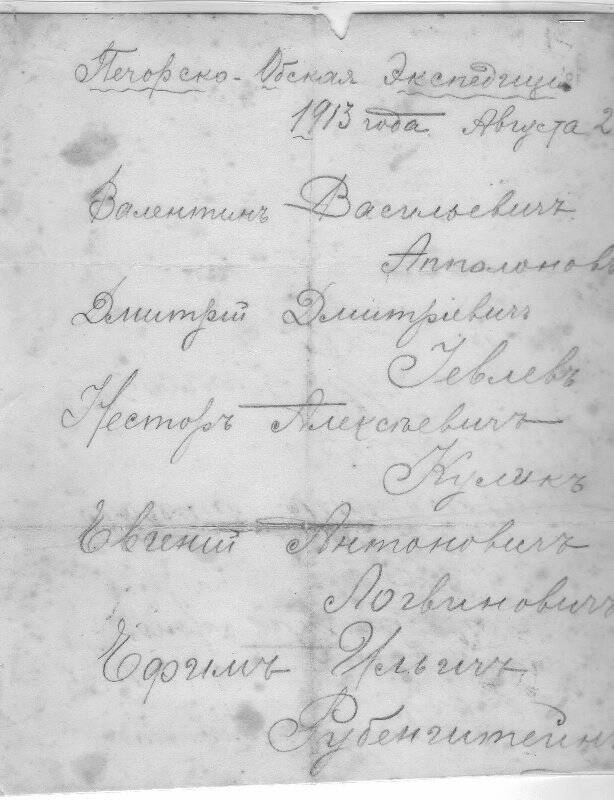 Печорско-Обская Экспедиція
1913 года Августа 2
Валентинъ Васильевичъ
Апполоновъ
Дмитрій Дмитріевичъ
Іевлевъ
Несторъ Алексѣевичъ
Куликъ
Евгеній Антоновичъ
Логвиновичъ
Ефимъ Ильичъ
Рубенштейнъ